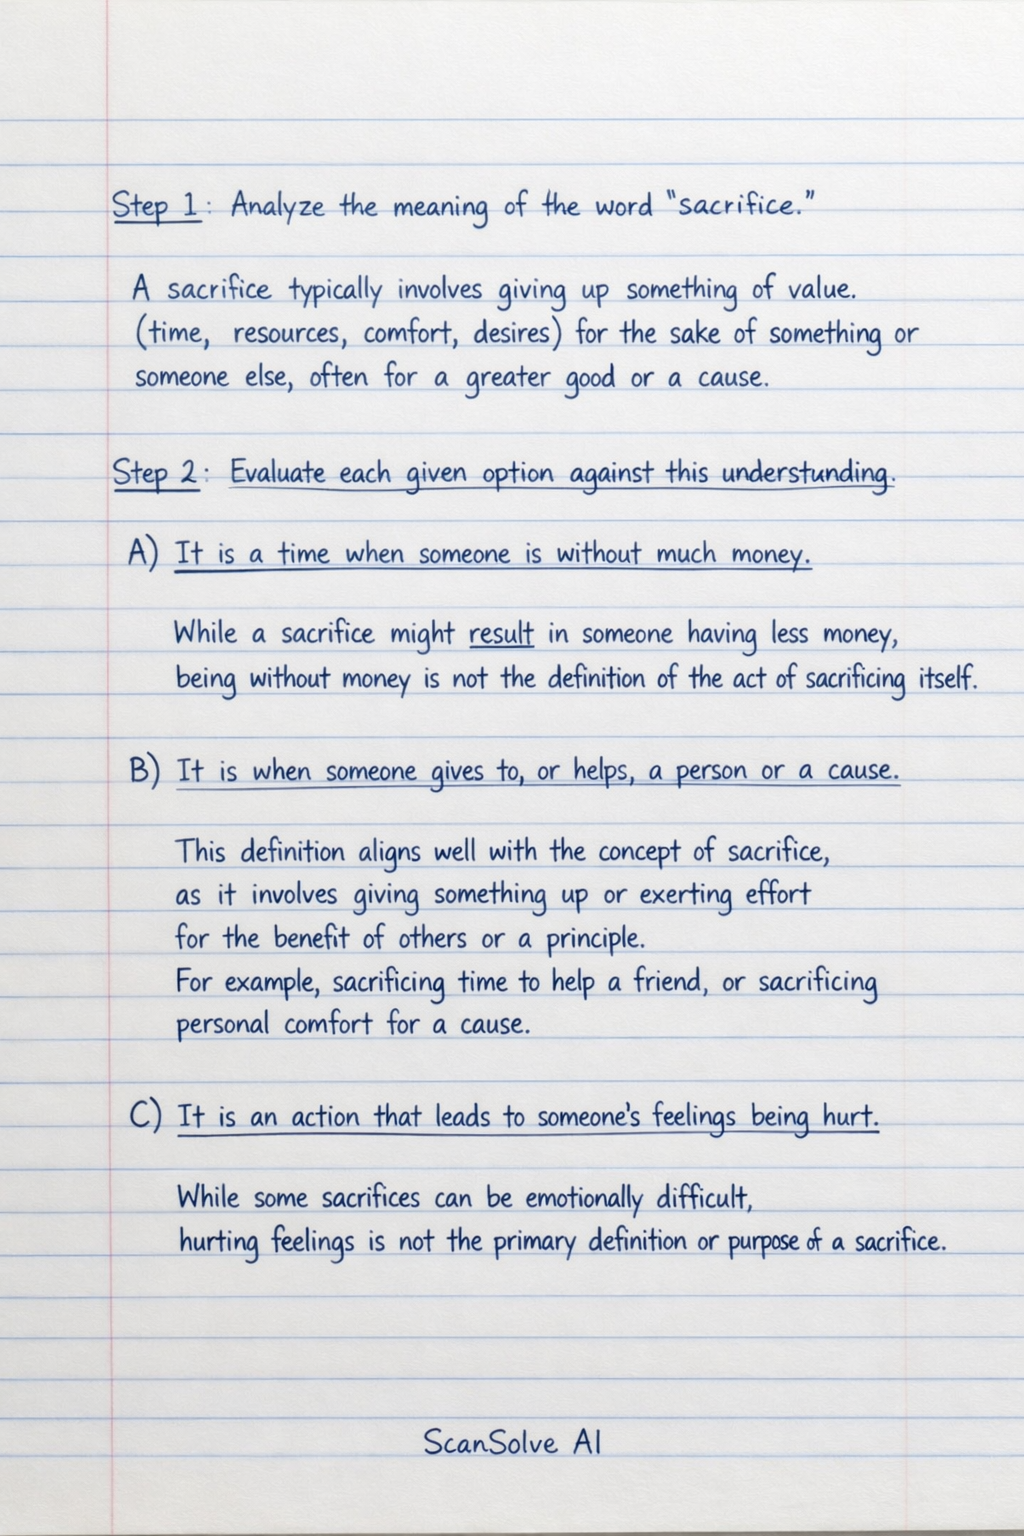 Step 1: Analyze the meaning of the word "sacrifice."
A sacrifice typically involves giving up something of value.
(time, resources, comfort, desires) for the sake of something or
someone else, often for a greater good or a cause.
Step 2: Evaluate each given option against this understunding.
A) It is a time when someone is without much money.
While a sacrifice might result in someone having less money,
being without money is not the definition of the act of sacrificing itself.
B) It is when someone gives to, or helps, a person or a cause.
This definition aligns well with the concept of sacrifice,
as it involves giving something up or exerting effort
for the benefit of others or a principle.
For example, sacrificing time to help a friend, or sacrificing
personal comfort for a cause.
C) It is an action that leads to someone's feelings being hurt.
While some sacrifices can be emotionally difficult,
hurting feelings is not the primary definition or purpose of a sacrifice.
ScanSolve AI